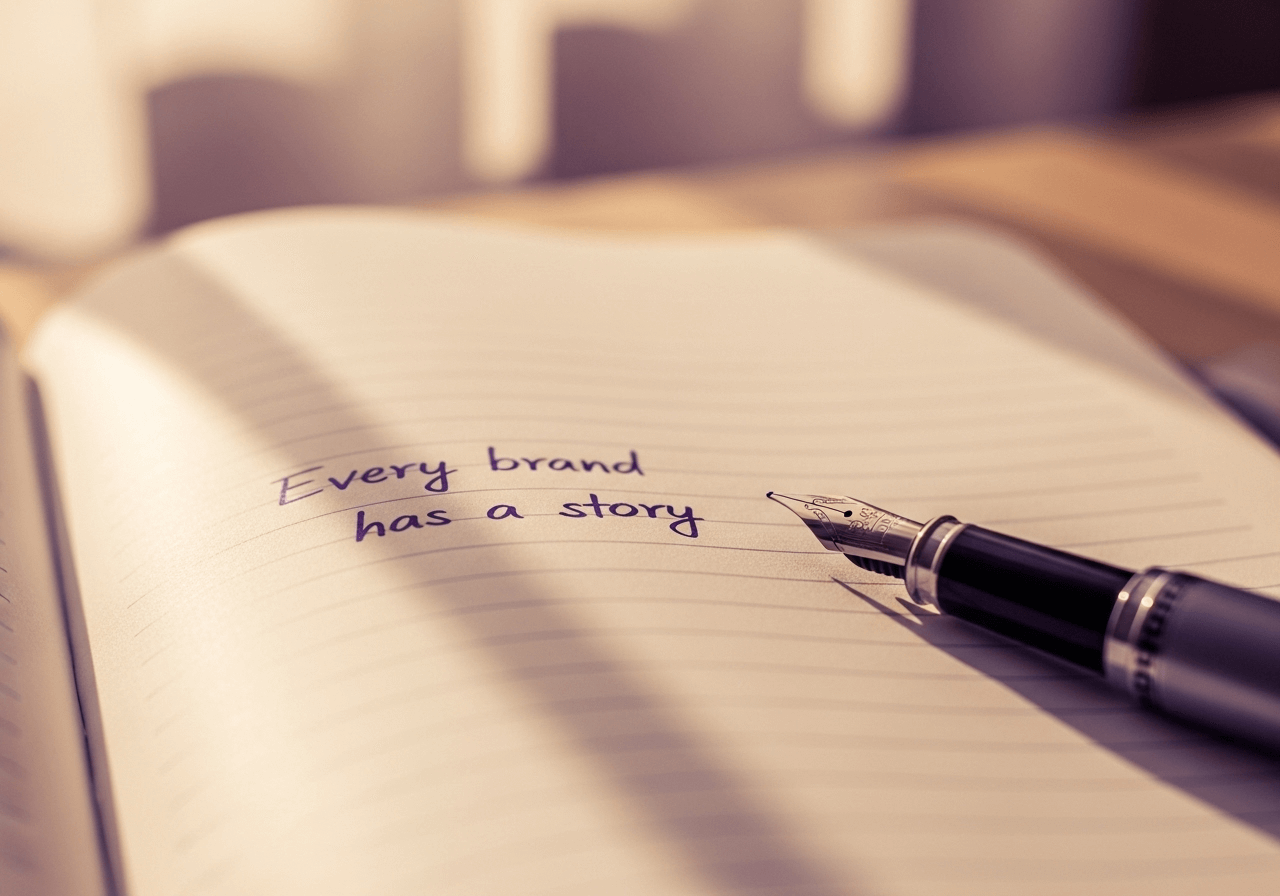 Every brand
has a story